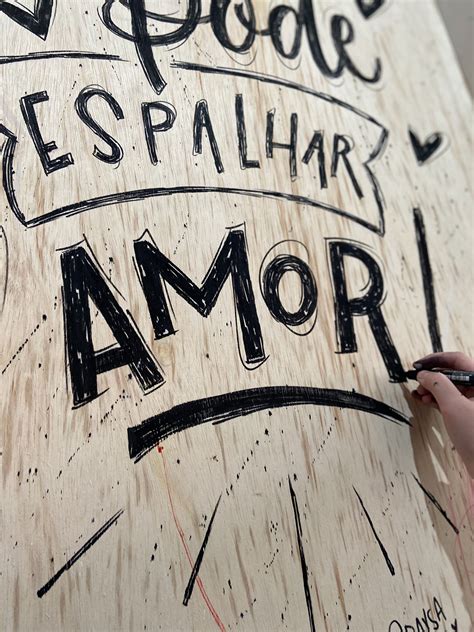 pode
ESPALHAR
AMOR